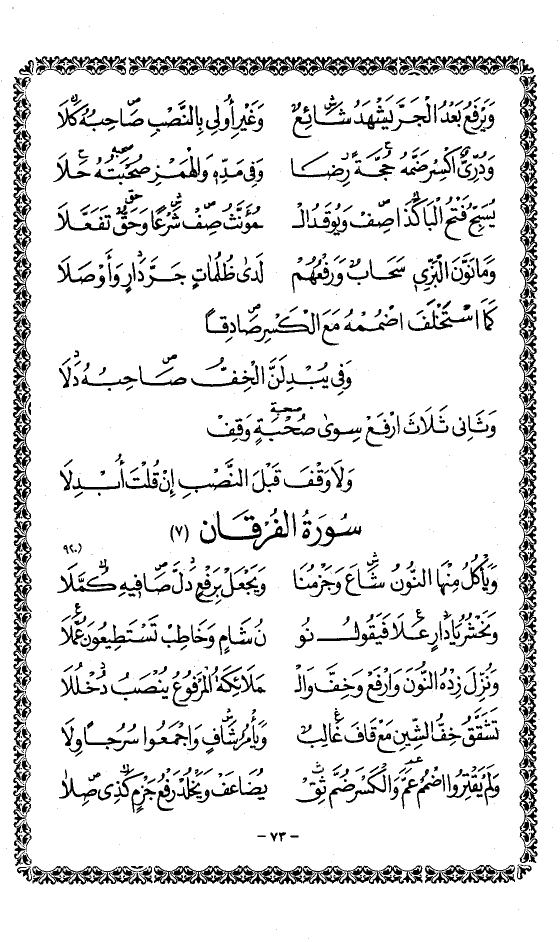 وَيَرْفَعُ بَعْدُ الْجَرَّ يَشْهَدُ شَائِعٌ وَغَيْرِ أُولِى بِالنَّصْبِ صَاحِبُهُ كَلَا
وَدُرِّىٌّ اكْسِرْ ضَمَّهُ حُجَّةً رِضَا وَفِى مَدِّهِ وَالْهَمْزِ صُحْبَتُهُ حَلَا
يُسَبِّحُ فَتْحُ الْبَا كَذَا صِفْ وَيُوقَدُ الْـ مُؤَنَّثُ صِفْ شَرْعًا وَحَقٌّ تَفَعَّلَا
وَمَا نَوَّنَ الْبَزِّى سَحَابٌ وَرَفْعُهُمْ لَدَى ظُلُمَاتٍ جَرَّ دَارٍ وَأَوْصَلَا
كَمَا اسْتُخْلِفَ اضْمُمْهُ مَعَ الْكَسْرِ صَادِقًا
وَفِى يُبْدِلَنَّ الْخِفُّ صَاحِبُهُ دَلَا
وَثَانِىَ ثَلَاثَ ارْفَعْ سِوَى صُحْبَةٍ وَقِفْ
وَلَا وَقْفَ قَبْلَ النَّصْبِ إِنْ قُلْتَ أُبْدِلَا
سُورَةُ الْفُرْقَانِ (٧)
(٩٢٠
وَيَأْكُلُ مِنْهَا النُّونُ شَاعَ وَجَزْمُنَا وَيَجْعَلْ بِرَفْعٍ دَلَّ صَافِيهِ كُمَّلَا
وَنَحْشُرُ يَا دَارٍ عَلَا فَيَقُولُ نُو نُ شَامٍ وَخَاطِبْ تَسْتَطِيعُونَ عُمَّلَا
وَنُزِّلَ زِدْهُ النُّونَ وَارْفَعْ وَخِفَّ وَالْـ مَلَائِكَةُ الْمَرْفُوعُ يُنْصَبُ دُخْلُلَا
تَشَقَّقُ خِفُّ الشِّينِ مَعْ قَافَ غَالِبٌ وَيَأْمُرُ شَافٍ وَاجْمَعُوا سُرُجًا وِلَا
وَلَمْ يَقْتِرُوا اضْمُمْ عَمَّ وَالْكَسْرَ ضُمَّ ثِقْ يُضَاعَفْ وَيَخْلُدْ رَفْعُ جَزْمٍ كَذِى صِلَا
- ٧٣ -